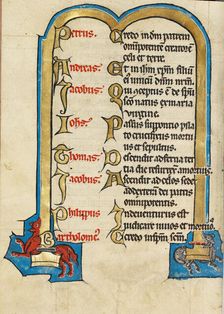 Petrus. Credo in dm patrem
omnipotente creatore
celi et terre.
Andreas. Et in ihm xpm filiu
ei unicu dnm nrm.
Jacobus. Qui conceptus e de spu
sco natus ex maria
virgine.
Johs. Passus sub pontio pila
to crucifixus mortuus
et sepultus.
Thomas. Descendit ad inferna ter
cia die resurrex a mortuis.
Jacobus. Ascendit ad celos sedet
ad dexteram dei patris
omnipotentis.
Philippus Inde uenturus est
iudicare uiuos et mortuos.
Bartholome. Credo in spm scm.